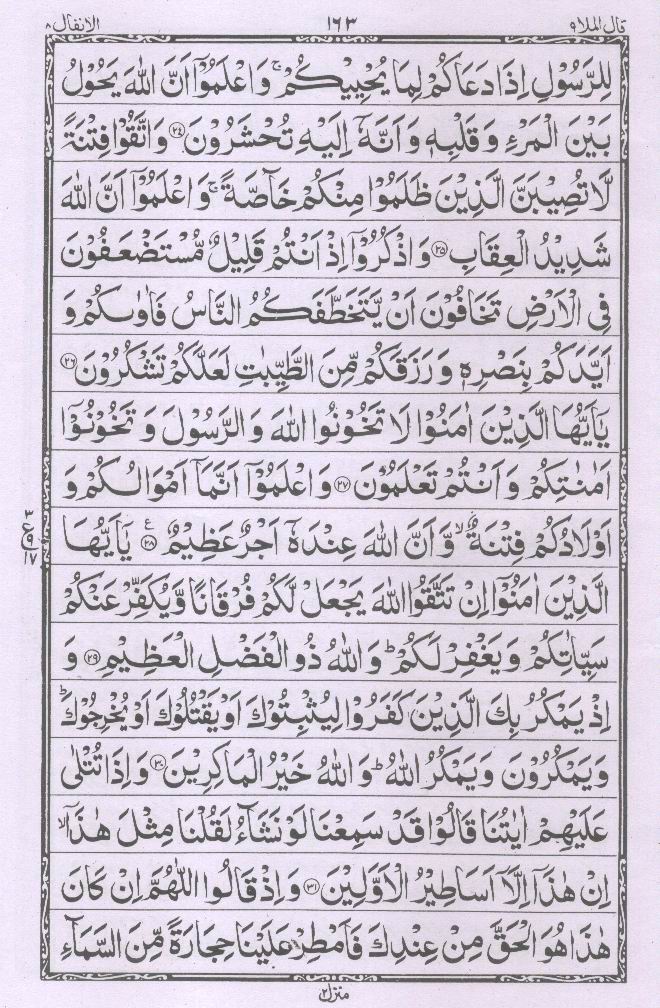 قال الملا ٩ ١٦٣ الانفال ٨
لِلرَّسُوْلِ اِذَا دَعَاكُمْ لِمَا يُحْيِيْكُمْ ۚ وَاعْلَمُوْٓا اَنَّ اللّٰهَ يَحُوْلُ
بَيْنَ الْمَرْءِ وَقَلْبِهٖ وَاَنَّهٗٓ اِلَيْهِ تُحْشَرُوْنَ ۝٢٤ وَاتَّقُوْا فِتْنَةً
لَّا تُصِيْبَنَّ الَّذِيْنَ ظَلَمُوْا مِنْكُمْ خَآصَّةً ۚ وَاعْلَمُوْٓا اَنَّ اللّٰهَ
شَدِيْدُ الْعِقَابِ ۝٢٥ وَاذْكُرُوْٓا اِذْ اَنْتُمْ قَلِيْلٌ مُّسْتَضْعَفُوْنَ
فِى الْاَرْضِ تَخَافُوْنَ اَنْ يَّتَخَطَّفَكُمُ النَّاسُ فَاٰوٰىكُمْ وَ
اَيَّدَكُمْ بِنَصْرِهٖ وَرَزَقَكُمْ مِّنَ الطَّيِّبٰتِ لَعَلَّكُمْ تَشْكُرُوْنَ ۝٢٦
يٰٓاَيُّهَا الَّذِيْنَ اٰمَنُوْا لَا تَخُوْنُوا اللّٰهَ وَالرَّسُوْلَ وَتَخُوْنُوْٓا
اَمٰنٰتِكُمْ وَاَنْتُمْ تَعْلَمُوْنَ ۝٢٧ وَاعْلَمُوْٓا اَنَّمَآ اَمْوَالُكُمْ وَ
اَوْلَادُكُمْ فِتْنَةٌ ۙ وَّاَنَّ اللّٰهَ عِنْدَهٗٓ اَجْرٌ عَظِيْمٌ ۝٢٨ ع يٰٓاَيُّهَا
٣ ع ٩ ١٧
الَّذِيْنَ اٰمَنُوْٓا اِنْ تَتَّقُوا اللّٰهَ يَجْعَلْ لَّكُمْ فُرْقَانًا وَّيُكَفِّرْ عَنْكُمْ
سَيِّاٰتِكُمْ وَيَغْفِرْ لَكُمْ ؕ وَاللّٰهُ ذُو الْفَضْلِ الْعَظِيْمِ ۝٢٩ وَ
اِذْ يَمْكُرُ بِكَ الَّذِيْنَ كَفَرُوْا لِيُثْبِتُوْكَ اَوْ يَقْتُلُوْكَ اَوْ يُخْرِجُوْكَ ؕ
وَيَمْكُرُوْنَ وَيَمْكُرُ اللّٰهُ ؕ وَاللّٰهُ خَيْرُ الْمَاكِرِيْنَ ۝٣٠ وَاِذَا تُتْلٰى
عَلَيْهِمْ اٰيٰتُنَا قَالُوْا قَدْ سَمِعْنَا لَوْ نَشَآءُ لَقُلْنَا مِثْلَ هٰذَآ ۙ
اِنْ هٰذَآ اِلَّآ اَسَاطِيْرُ الْاَوَّلِيْنَ ۝٣١ وَاِذْ قَالُوا اللّٰهُمَّ اِنْ كَانَ
هٰذَا هُوَ الْحَقَّ مِنْ عِنْدِكَ فَاَمْطِرْ عَلَيْنَا حِجَارَةً مِّنَ السَّمَآءِ
منزل ٢